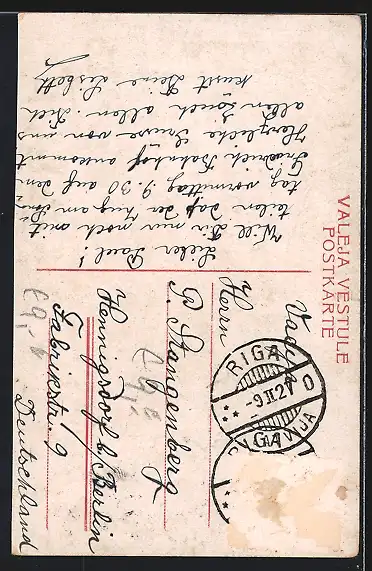 VAĻEJA VESTULE
POSTKARTE
Lieber Paul!
Will Dir nur noch mit
teilen daß der Zug am Sonn
tag vormittag 9.30 auf dem
Friedrich Bahnhof ankommt
Herzliche Grüsse von uns
allen Euch allen. Dich
küsst Deine Lisbeth
Herrn
P. Stangenberg
Hennigsdorf b/ Berlin
Fabrikstr. 9
Deutschland
RIGA
-9 II 27 0
LATVIJA